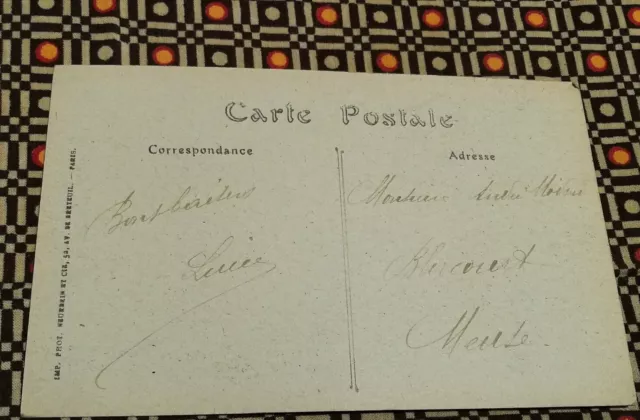 Carte Postale
Correspondance
Adresse
IMP. PHOT. NEURDEIN ET CIE, 52, AV. DE BRETEUIL. — PARIS.
Bons baisers
Lucie
Monsieur André
Meuse